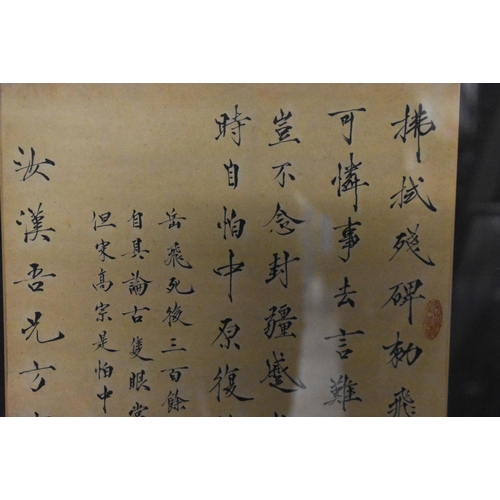 拂拭殘碑勅飛
可憐事去言難
豈不念封疆蹙
時自怕中原復
岳飛死後三百餘
自具論古隻眼堂
但宋高宗是怕中
汝漢吾兄方